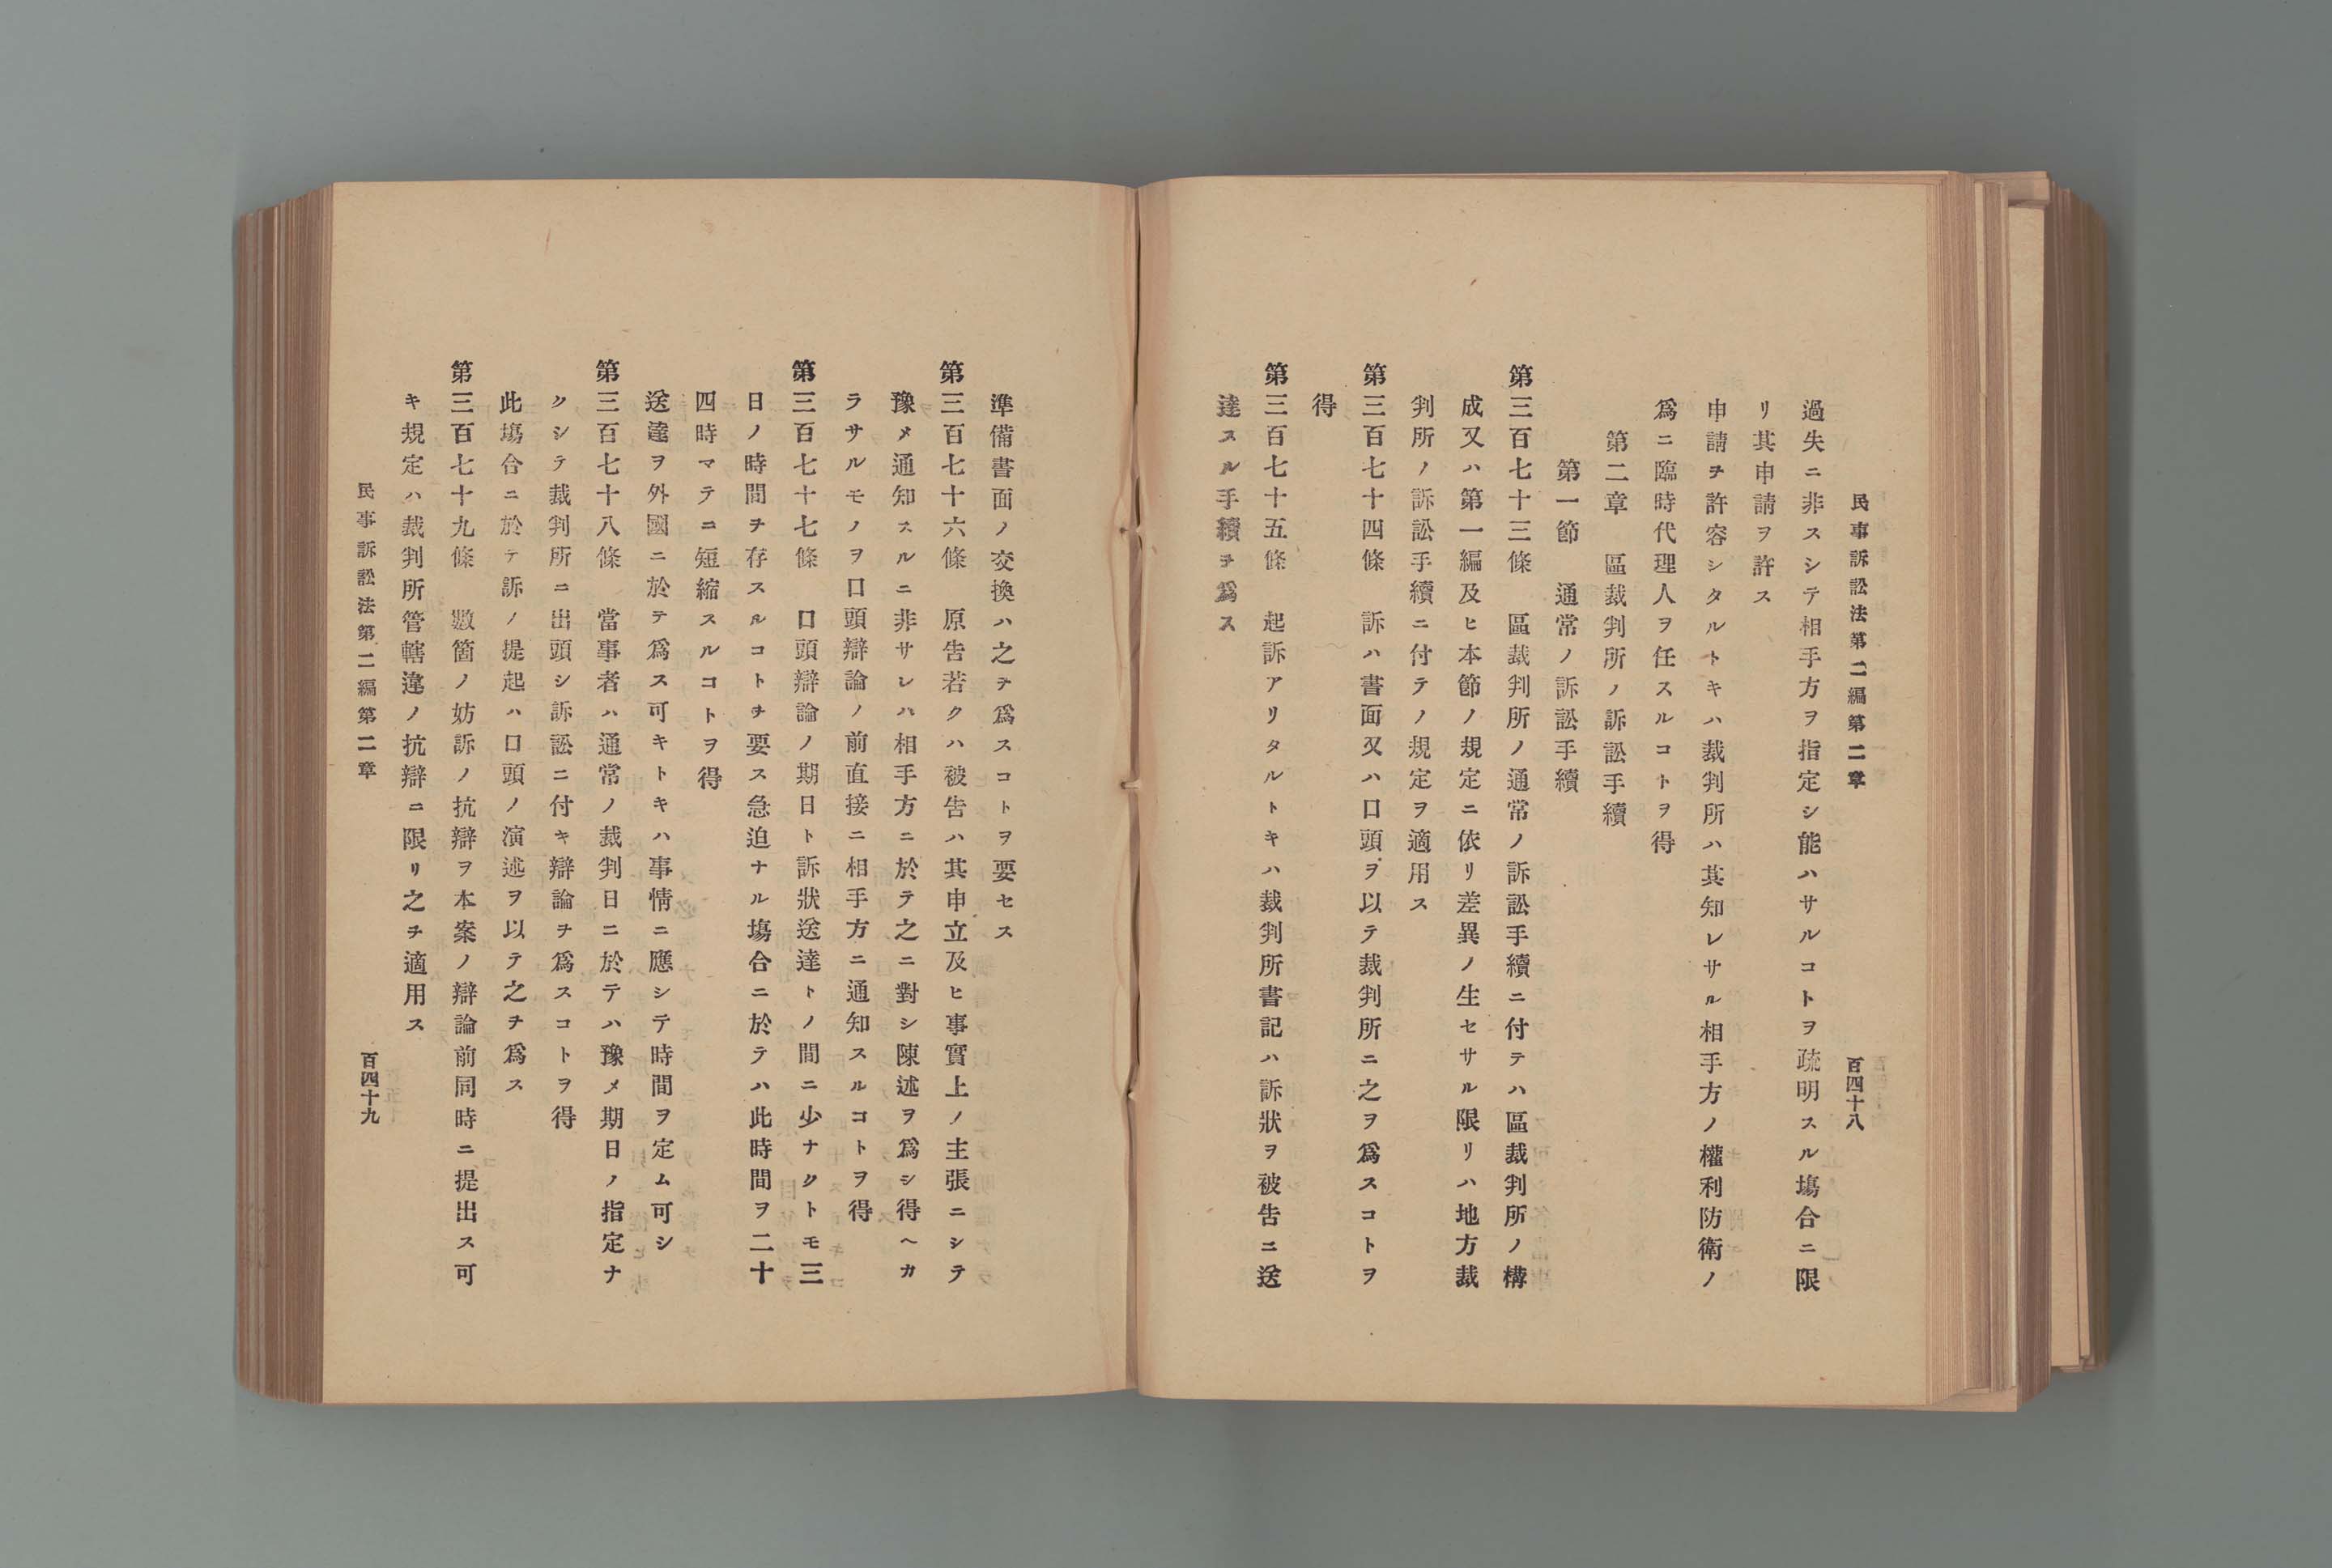 民事訴訟法第二編第二章 百四十八
過失ニ非スシテ相手方ヲ指定シ能ハサルコトヲ疏明スル塲合ニ限
リ其申請ヲ許ス
申請ヲ許容シタルトキハ裁判所ハ其知レサル相手方ノ權利防衛ノ
爲ニ臨時代理人ヲ任スルコトヲ得
第二章 區裁判所ノ訴訟手續
第一節 通常ノ訴訟手續
第三百七十三條 區裁判所ノ通常ノ訴訟手續ニ付テハ區裁判所ノ構
成又ハ第一編及ヒ本節ノ規定ニ依リ差異ノ生セサル限リハ地方裁
判所ノ訴訟手續ニ付テノ規定ヲ適用ス
第三百七十四條 訴ハ書面又ハ口頭ヲ以テ裁判所ニ之ヲ爲スコトヲ
得
第三百七十五條 起訴アリタルトキハ裁判所書記ハ訴狀ヲ被告ニ送
達スル手續ヲ爲ス
準備書面ノ交換ハ之ヲ爲スコトヲ要セス
第三百七十六條 原告若クハ被告ハ其申立及ヒ事實上ノ主張ニシテ
豫メ通知スルニ非サレハ相手方ニ於テ之ニ對シ陳述ヲ爲シ得ヘカ
ラサルモノヲ口頭辯論ノ前直接ニ相手方ニ通知スルコトヲ得
第三百七十七條 口頭辯論ノ期日ト訴狀送達トノ間ニ少ナクトモ三
日ノ時間ヲ存スルコトヲ要ス急迫ナル塲合ニ於テハ此時間ヲ二十
四時マテニ短縮スルコトヲ得
送達ヲ外國ニ於テ爲ス可キトキハ事情ニ應シテ時間ヲ定ム可シ
第三百七十八條 當事者ハ通常ノ裁判日ニ於テハ豫メ期日ノ指定ナ
クシテ裁判所ニ出頭シ訴訟ニ付キ辯論ヲ爲スコトヲ得
此塲合ニ於テ訴ノ提起ハ口頭ノ演述ヲ以テ之ヲ爲ス
第三百七十九條 數箇ノ妨訴ノ抗辯ヲ本案ノ辯論前同時ニ提出ス可
キ規定ハ裁判所管轄違ノ抗辯ニ限リ之ヲ適用ス
民事訴訟法第二編第二章 百四十九